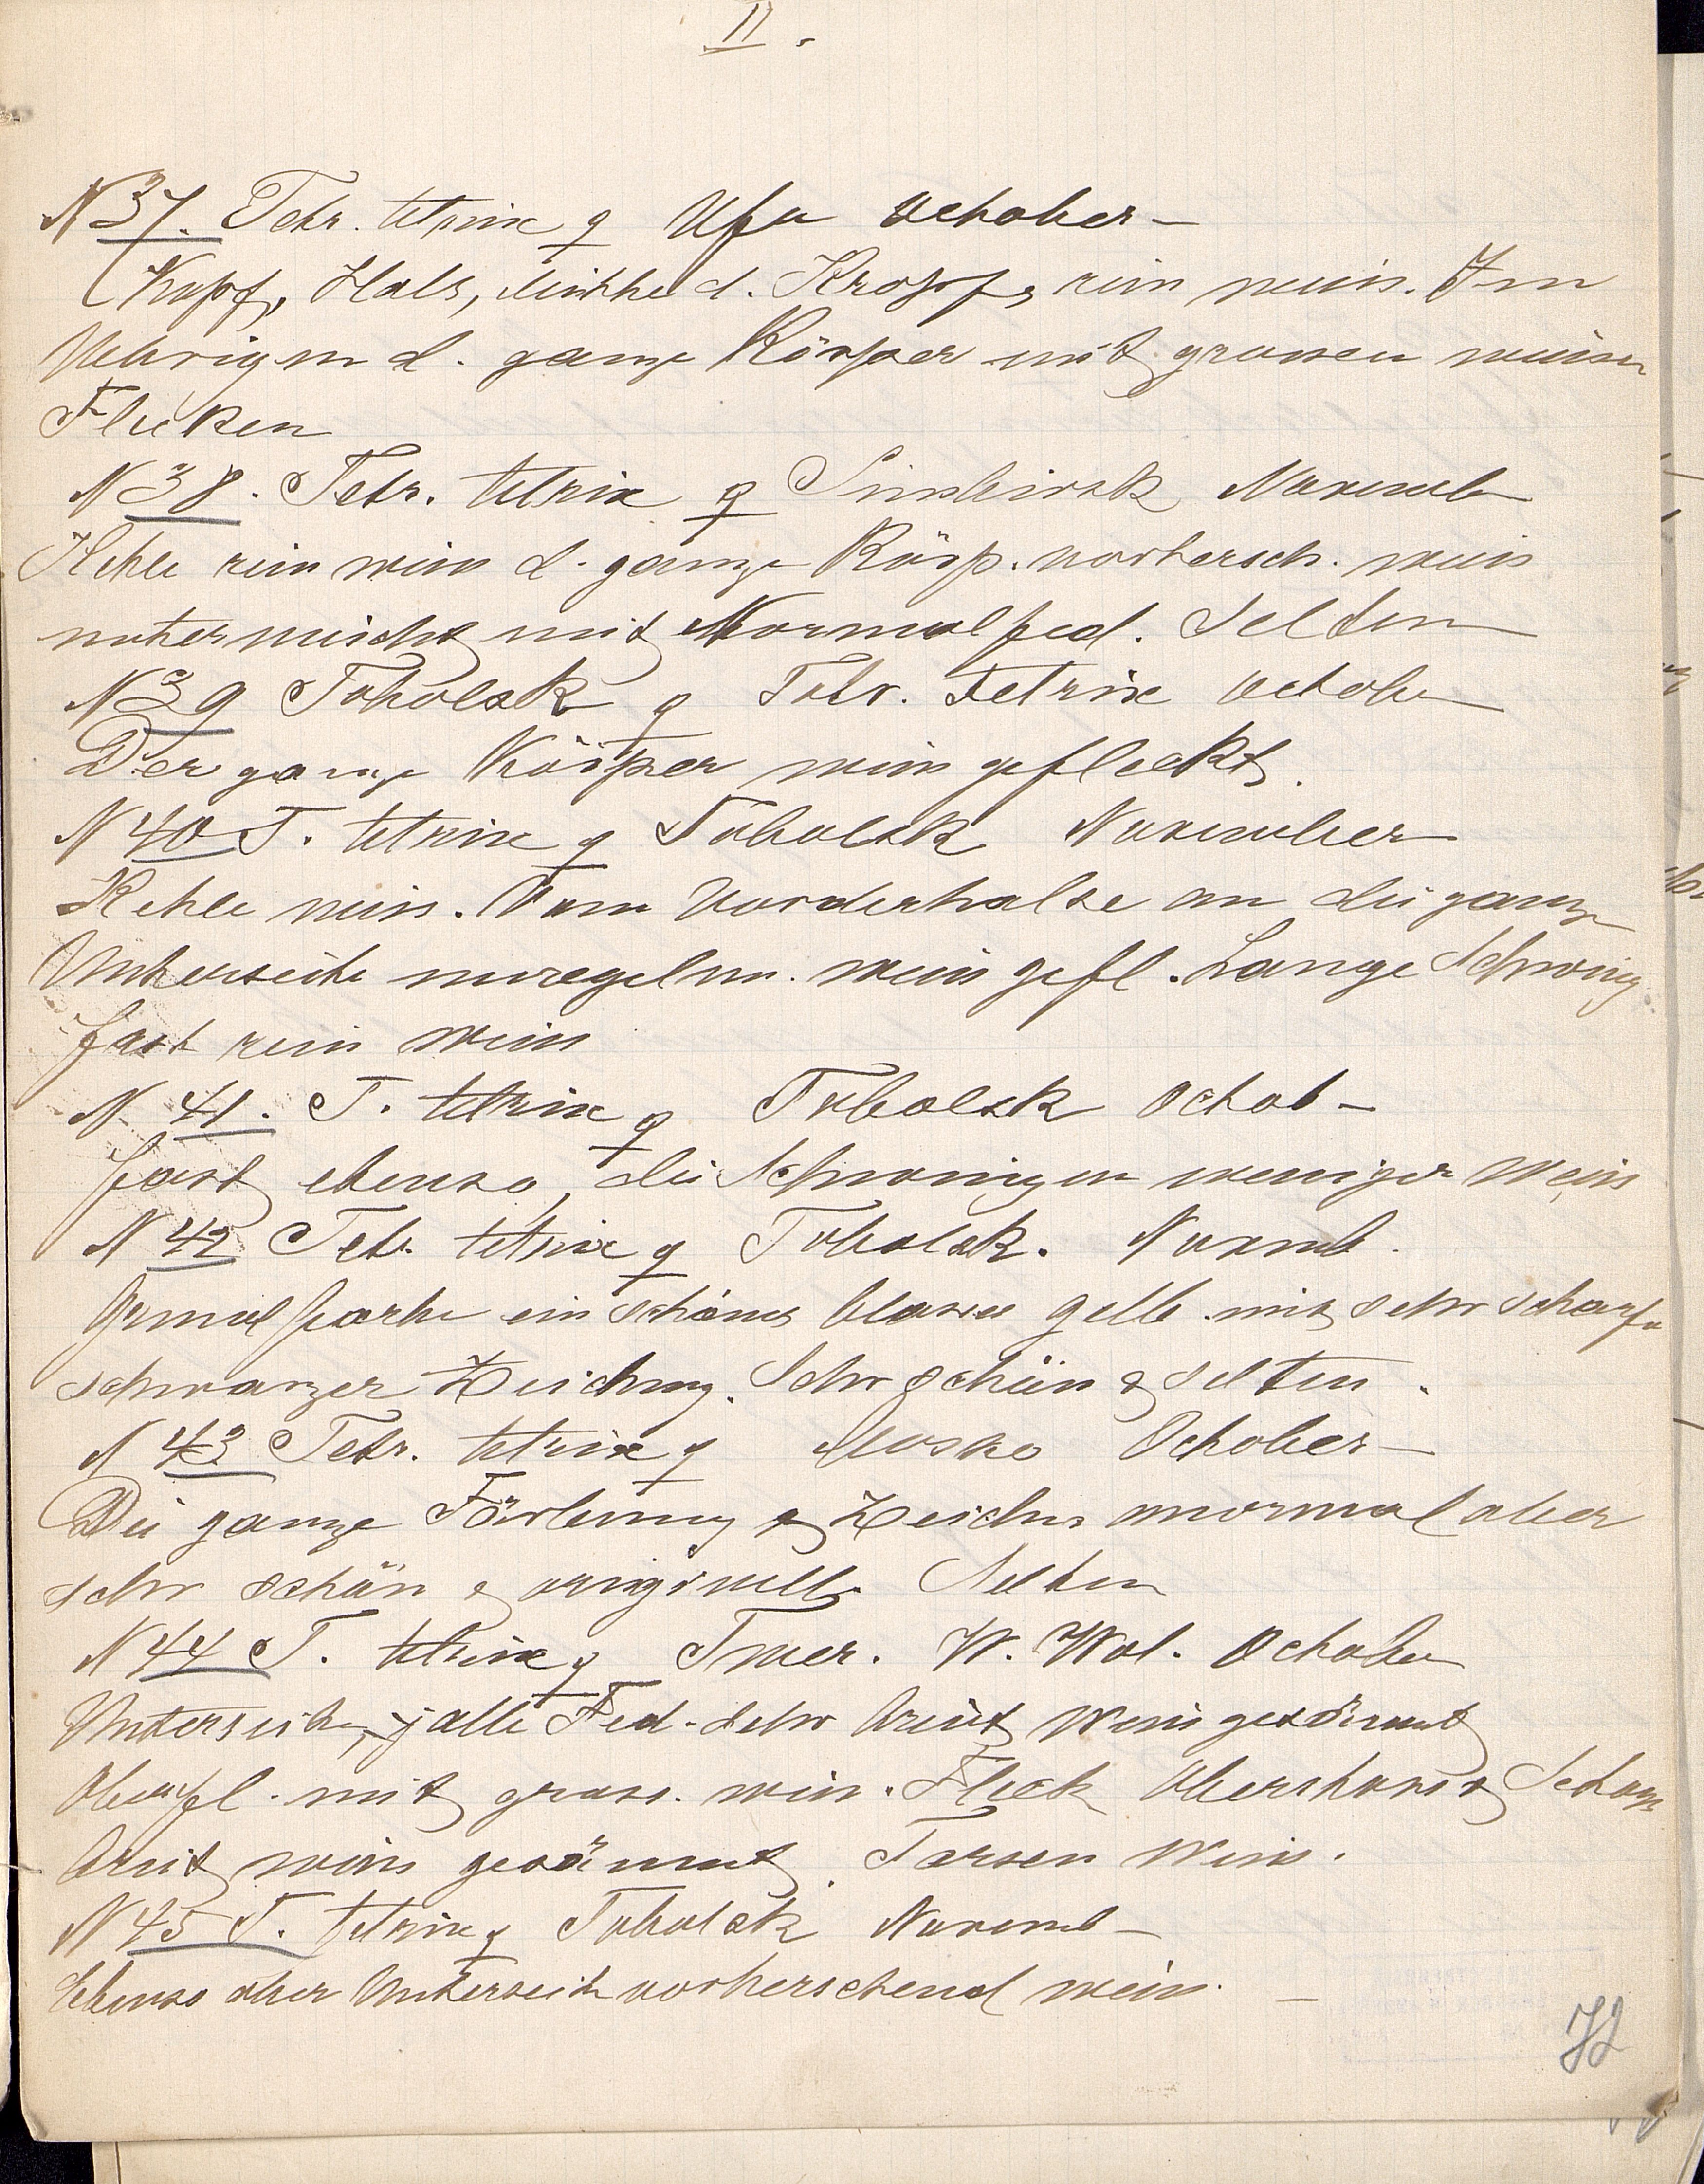 II.
N 37. Tetr. tetrix ♀ Ufa October –
Kopf, Hals, Mitthe d. Kropfs rein weis. Im
Uebrigen d. ganze Körper mit grossen weissen
Flecken
N 38. Tetr. tetrix ♀ Simbirsk Novemb
Kehle rein weiss d. ganze Körp. vorhersch. weis
untermischt mit Normalfed. Selten
N 39 Tobolsk ♀ Tetr. tetrix October
Der ganze Körper weiss gefleckt.
N 40 T. tetrix ♀ Tobolsk November
Kehle weiss. Vom Vorderhalse an die ganze
Unterseite unregelm. weiss gefl. Lange Schwing
fast rein weiss
N 41. T. tetrix ♀ Tobolsk Octob –
fast ebenso, die Schwingen weniger weiss
N 42 Tetr. tetrix ♀ Tobolsk. Novemb.
ein schönes blasses gelb mit sehr scharfe
schwarzer Zeichnng. Sehr schön & selten.
N 43 Tetr. tetrix ♀ Mosko October –
Die ganze Färbung & Zeichn anormal aber
sehr schön & originell. Selten
N 44 T. tetrix ♀ Twer. W. Wol. October
Unterseite, alle Fed. sehr breit weis gesäumt
Oberfl. mit gross. weis. Fleck Oberschwanz & Schwanz
breit weiss gesäumt. Tarsen weiss.
N 45 T. tetrix ♀ Tobolsk Novemb –
Ebenso aber Unterseite vorherschend weiss. –
72